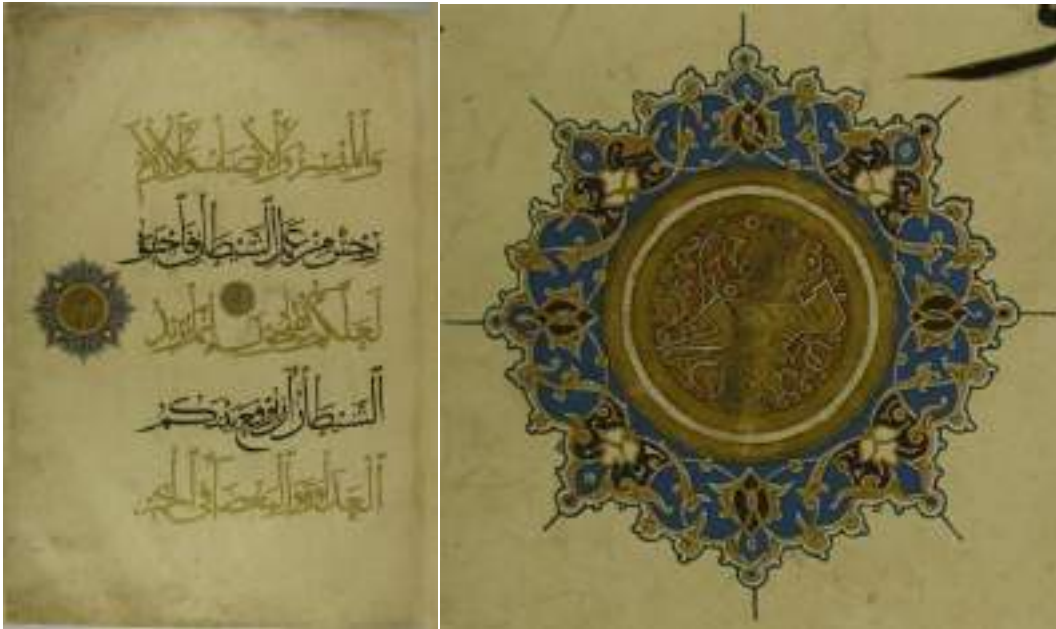 والميسر والأنصاب والأزلام
رجس من عمل الشيطان فاجتنبوه
لعلكم تفلحون إنما يريد
الشيطان أن يوقع بينكم
العداوة والبغضاء في الخمر